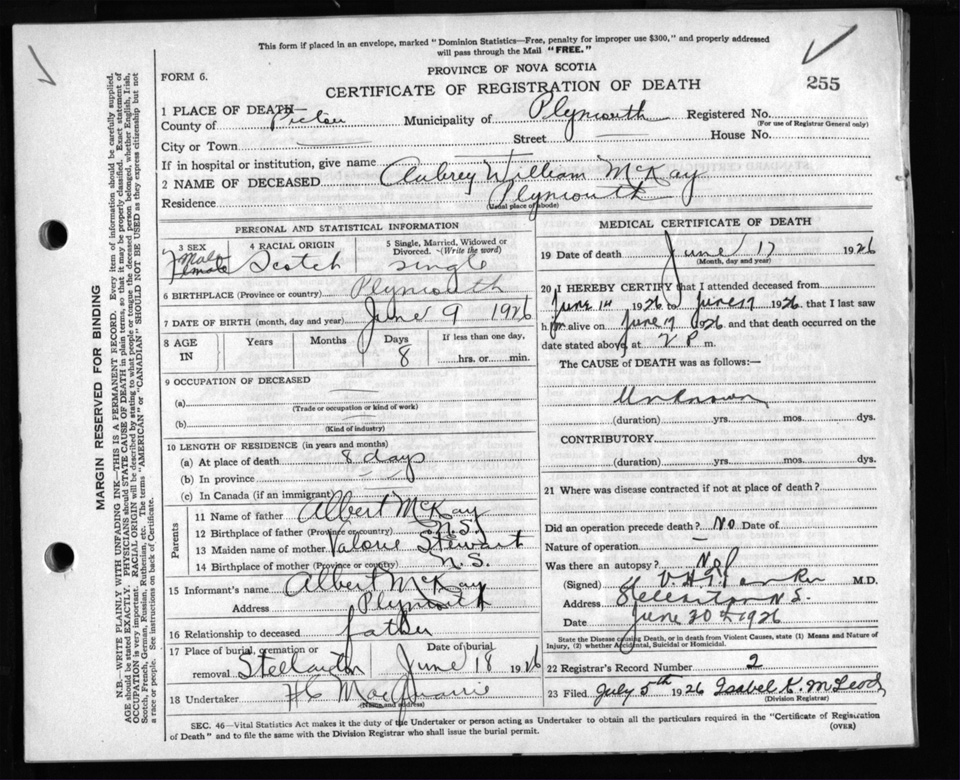 This form if placed in an envelope, marked "Dominion Statistics—Free, penalty for improper use $300," and properly addressed
will pass through the Mail "FREE."
FORM 6.
PROVINCE OF NOVA SCOTIA
CERTIFICATE OF REGISTRATION OF DEATH
255
1 PLACE OF DEATH—
County of Pictou Municipality of Plymouth Registered No.
(For use of Registrar General only)
City or Town Street House No.
If in hospital or institution, give name
2 NAME OF DECEASED Aubrey William McKay
Residence Plymouth
(Usual place of abode)
PERSONAL AND STATISTICAL INFORMATION
3 SEX
Male
Female
4 RACIAL ORIGIN
Scotch
5 Single, Married, Widowed or
Divorced. (Write the word)
Single
6 BIRTHPLACE (Province or country) Plymouth
7 DATE OF BIRTH (month, day and year) June 9 1926
8 AGE
IN
Years Months Days
8
If less than one day,
hrs. or min.
9 OCCUPATION OF DECEASED
(a)
(Trade or occupation or kind of work)
(b)
(Kind of industry)
10 LENGTH OF RESIDENCE (in years and months)
(a) At place of death 8 days
(b) In province
(c) In Canada (if an immigrant)
Parents
11 Name of father Albert McKay
12 Birthplace of father (Province or country) N.S.
13 Maiden name of mother Valorie Stewart
14 Birthplace of mother (Province or country) N.S.
15 Informant's name Albert McKay
Address Plymouth
16 Relationship to deceased father
17 Place of burial, cremation or
removal Stellarton
Date of burial
June 18 1926
18 Undertaker
(Name and address)
MEDICAL CERTIFICATE OF DEATH
19 Date of death June 17 1926
(Month, day and year)
20 I HEREBY CERTIFY that I attended deceased from
June 14 1926 to June 17 1926, that I last saw
him alive on June 17 1926 and that death occurred on the
date stated above, at 2 P m.
The CAUSE OF DEATH was as follows:—
Unknown
(duration) yrs. mos. dys.
CONTRIBUTORY
(duration) yrs. mos. dys.
21 Where was disease contracted if not at place of death?
Did an operation precede death? No Date of
Nature of operation —
Was there an autopsy? No
(Signed) M.D.
Address Stellarton N.S.
Date June 20th 1926
State the Disease causing Death, or in death from Violent Causes, state (1) Means and Nature of
Injury, (2) whether Accidental, Suicidal or Homicidal.
22 Registrar's Record Number 2
23 Filed July 5th 1926 Isabel K. McLeod
(Division Registrar)
SEC. 46—Vital Statistics Act makes it the duty of the Undertaker or person acting as Undertaker to obtain all the particulars required in the "Certificate of Registration
of Death" and to file the same with the Division Registrar who shall issue the burial permit.
(OVER)
MARGIN RESERVED FOR BINDING
N.B.—WRITE PLAINLY WITH UNFADING INK—THIS IS A PERMANENT RECORD. Every item of information should be carefully supplied.
AGE should be stated EXACTLY. PHYSICIANS should STATE CAUSE OF DEATH in plain terms, so that it may be properly classified. Exact statement of
OCCUPATION is very important. RACIAL ORIGIN will be described by stating to what people or tongue the deceased person belonged, whether English, Irish,
Scotch, French, German, Russian, Ruthenian, etc. The terms "AMERICAN" or "CANADIAN" SHOULD NOT BE USED as they express citizenship but not
a race or people. See instructions on back of Certificate.